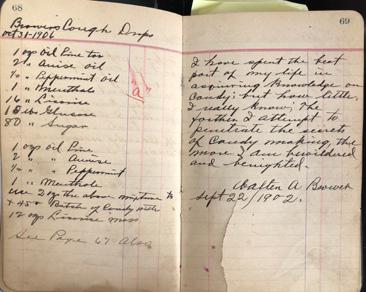 68
Browers Cough Drops
Oct 31-1906
1 ozs oil Pine tar
2 " Anise oil
1/2 " Peppermint oil
1 " Menthols
16 " Licorice
lbs Glucose
80 " Sugar
"a"
1 ozs oil Pine
2 " " Anise
1/2 " " Peppermint
1 " Menthole
use 2 ozs the above mixture to
a 45# Batch of Candy with
12 ozs Licorice mass
See Page 67 Also
69
I have spent the best
part of my life in
acquiring knowledge on
Candy; but how little
I really know; The
farther I attempt to
penetrate the secrets
of Candy making, the
more I am bewildered
and benighted.
Walter A Brower
Sept 22/1902.